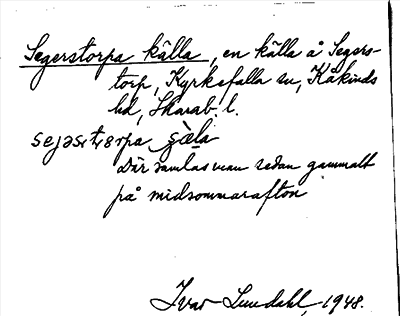 Segerstorpa källa, en källa å Segers-
torp, Kyrkefalla sn, Kåkinds
hd, Skarab. l.
sejəsṭɔrpa çæla
Där samlas man sedan gammalt
på midsommarafton
Ivar Lundahl, 1948.